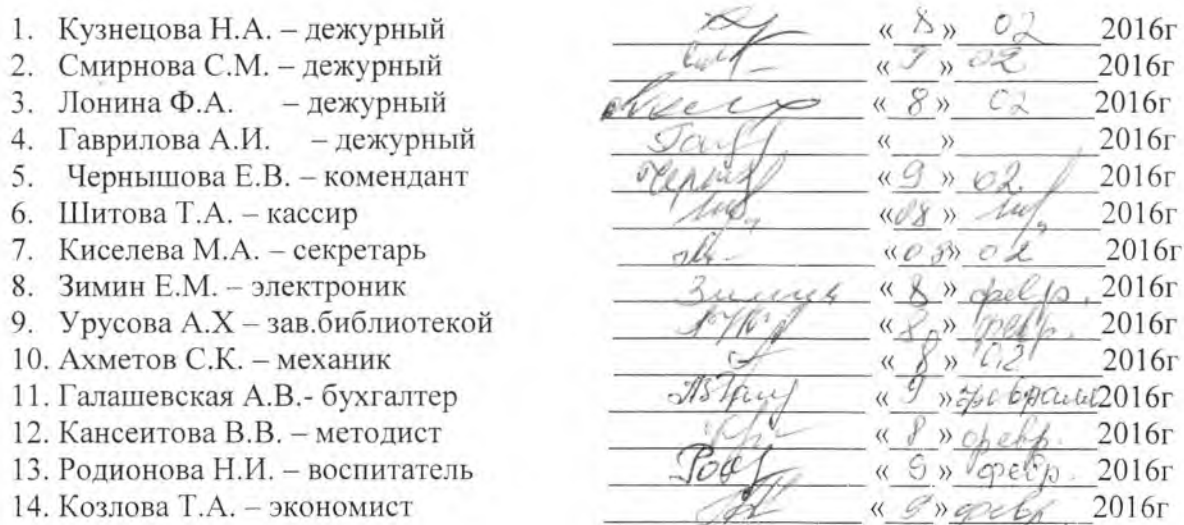 1. Кузнецова Н.А. – дежурный « 8 » 02 2016г
2. Смирнова С.М. – дежурный « 9 » 02 2016г
3. Лонина Ф.А. – дежурный « 8 » 02 2016г
4. Гаврилова А.И. – дежурный « » 2016г
5. Чернышова Е.В. – комендант « 9 » 02. 2016г
6. Шитова Т.А. – кассир «08 » 2016г
7. Киселева М.А. – секретарь « » 02 2016г
8. Зимин Е.М. – электроник « 8 » февр. 2016г
9. Урусова А.Х – зав.библиотекой « 8 » февр. 2016г
10. Ахметов С.К. – механик « 8 » 02 2016г
11. Галашевская А.В.- бухгалтер « 9 » февраля 2016г
12. Кансеитова В.В. – методист « 8 » февр. 2016г
13. Родионова Н.И. – воспитатель « 9 » февр. 2016г
14. Козлова Т.А. – экономист « 9 » февр 2016г